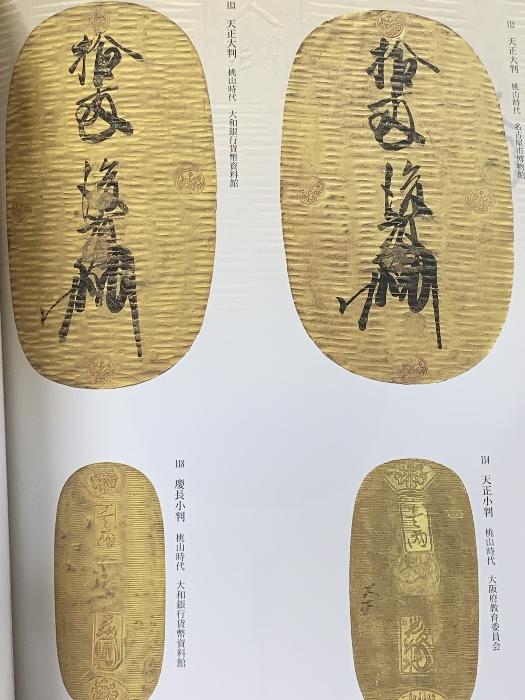 112 天正大判 桃山時代 名古屋市博物館
拾両
後藤
113 天正大判 桃山時代 大和銀行貨幣資料館
拾両
後藤
114 天正小判 桃山時代 大阪府教育委員会
壹两
118 慶長小判 桃山時代 大和銀行貨幣資料館
壹两